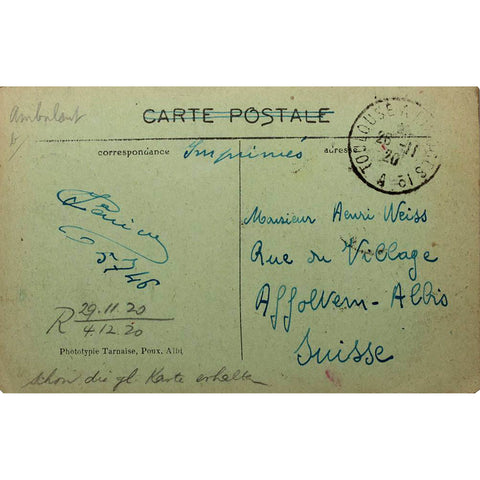 Ambulant
CARTE POSTALE
correspondance
Imprimés
adresse
TOULOUSE A
28-11
20
A
Monsieur Henri Weiss
Rue du Village
Affoltern-Albis
Suisse
R 29.11.20
4.12.20
Phototypie Tarnaise, Poux, Albi
schon die gl. Karte erhalten